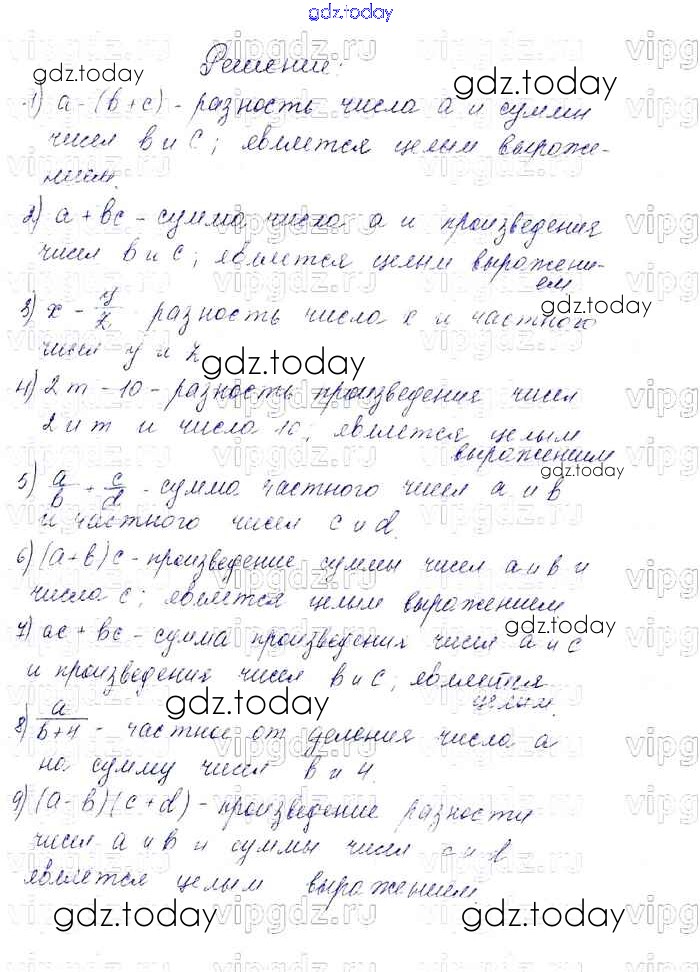 gdz.today
Решение:
1) a - (b + c) - разность числа a и суммы
чисел b и c; является целым выраже-
нием.
2) a + bc - сумма числа a и произведения
чисел b и c; является целым выражени-
ем
3) x - y/z разность числа x и частного
чисел y и z
4) 2m - 10 - разность произведения чисел
2 и m и числа 10; является целым
выражением
5) a/b + c/d - сумма частного чисел a и b
и частного чисел c и d.
6) (a + b) c - произведение суммы чисел a и b и
числа c; является целым выражением
7) ac + bc - сумма произведения чисел a и c
и произведения чисел b и c; является
целым.
8) a/b+4 - частное от деления числа a
на сумму чисел b и 4
9) (a - b)(c + d) - произведение разности
чисел a и b и суммы чисел c и d
является целым выражением
gdz.today
gdz.today
vipgdz.ru